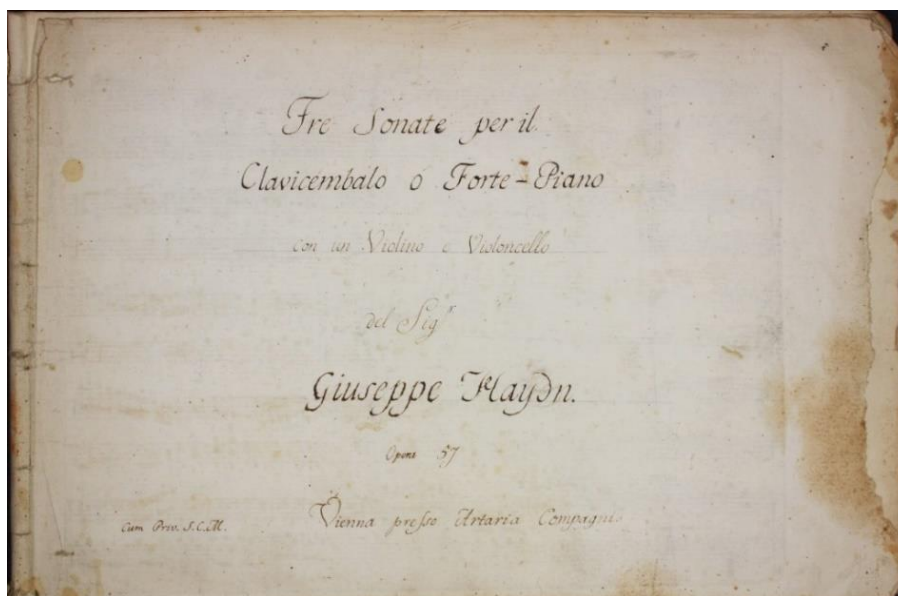 Tre Sonate per il
Clavicembalo o Forte-Piano
con un Violino e Violoncello
del Sigr
Giuseppe Haydn.
Opera 57
Cum Priv. S.C.M.
Vienna presso Artaria Compagnia